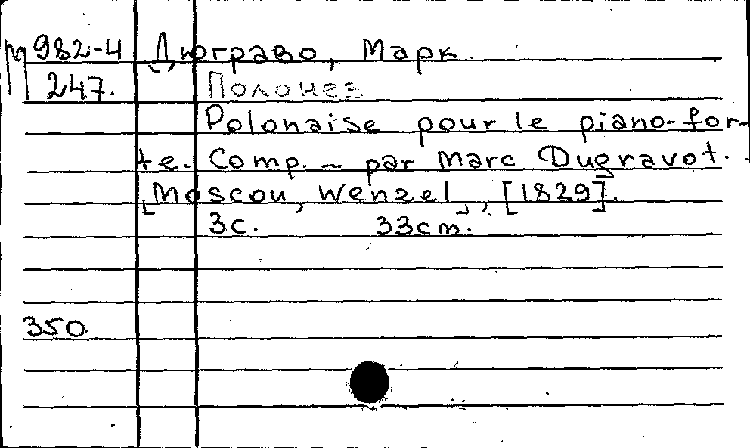 М 982-4 Дюграво, Марк.
247. Полонез
Polonaise pour le piano-for-
te. Comp. – par Marc Dugravot.
[Moscou, Wenzel], [1829].
3с. 33cm.
350